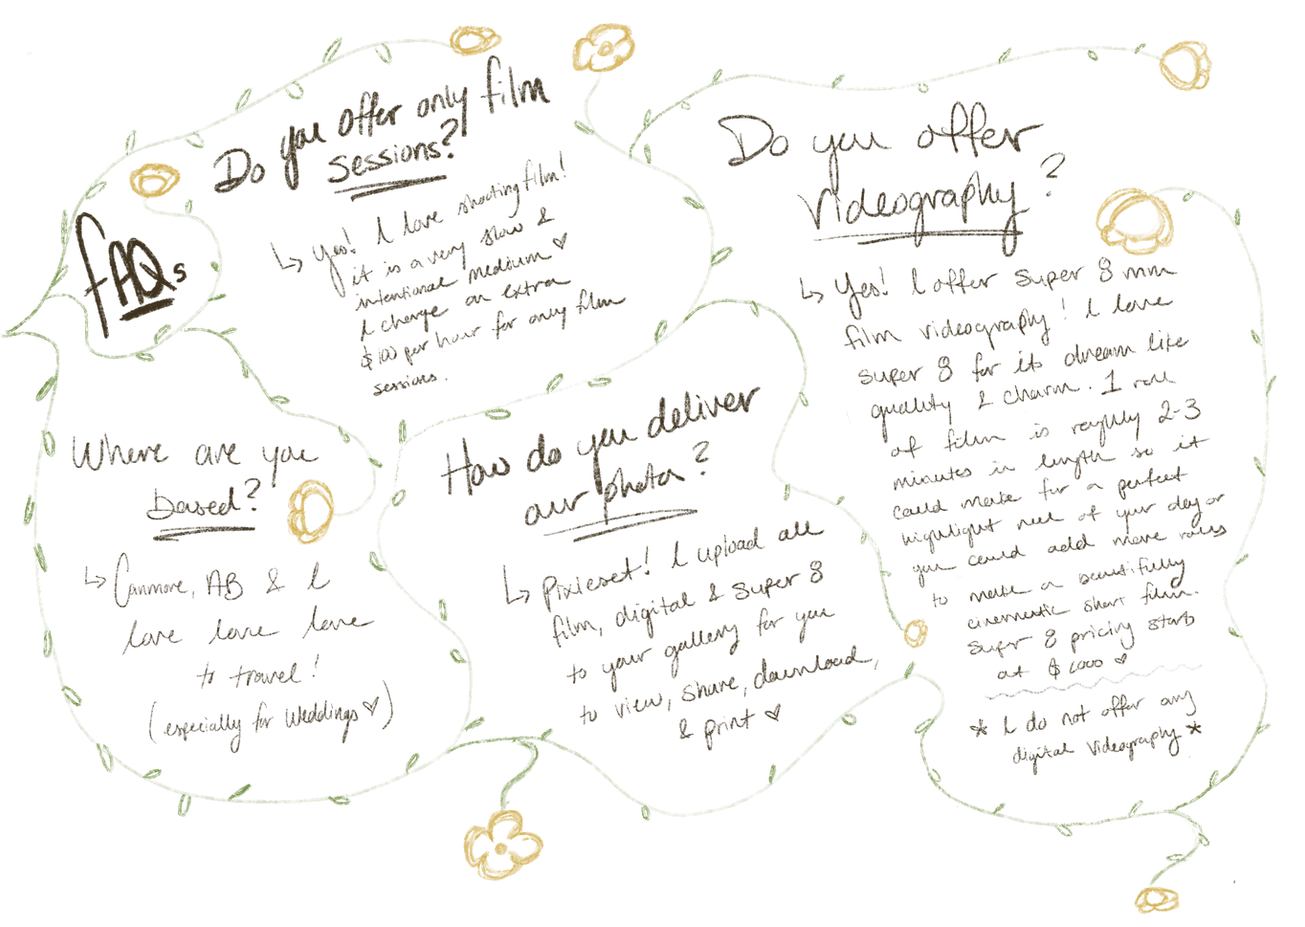 FAQs
Do you offer only film
sessions?
↳ Yes! I love shooting film!
it is a very slow &
intentional medium ♡
I charge an extra
$100 per hour for only film
sessions.
Where are you
based?
↳ Canmore, AB & I
love love love
to travel!
(especially for weddings ♡)
How do you deliver
our photos?
↳ Pixieset! I upload all
film, digital & super 8
to your gallery for you
to view, share, download,
& print ♡
Do you offer
videography?
↳ Yes! I offer super 8 mm
film videography! I love
super 8 for its dream like
quality & charm. 1 roll
of film is roughly 2-3
minutes in length so it
could make for a perfect
highlight reel of your day or
you could add more rolls
to make a beautifully
cinematic short film.
Super 8 pricing starts
at $1000 ♡
* I do not offer any
digital videography *